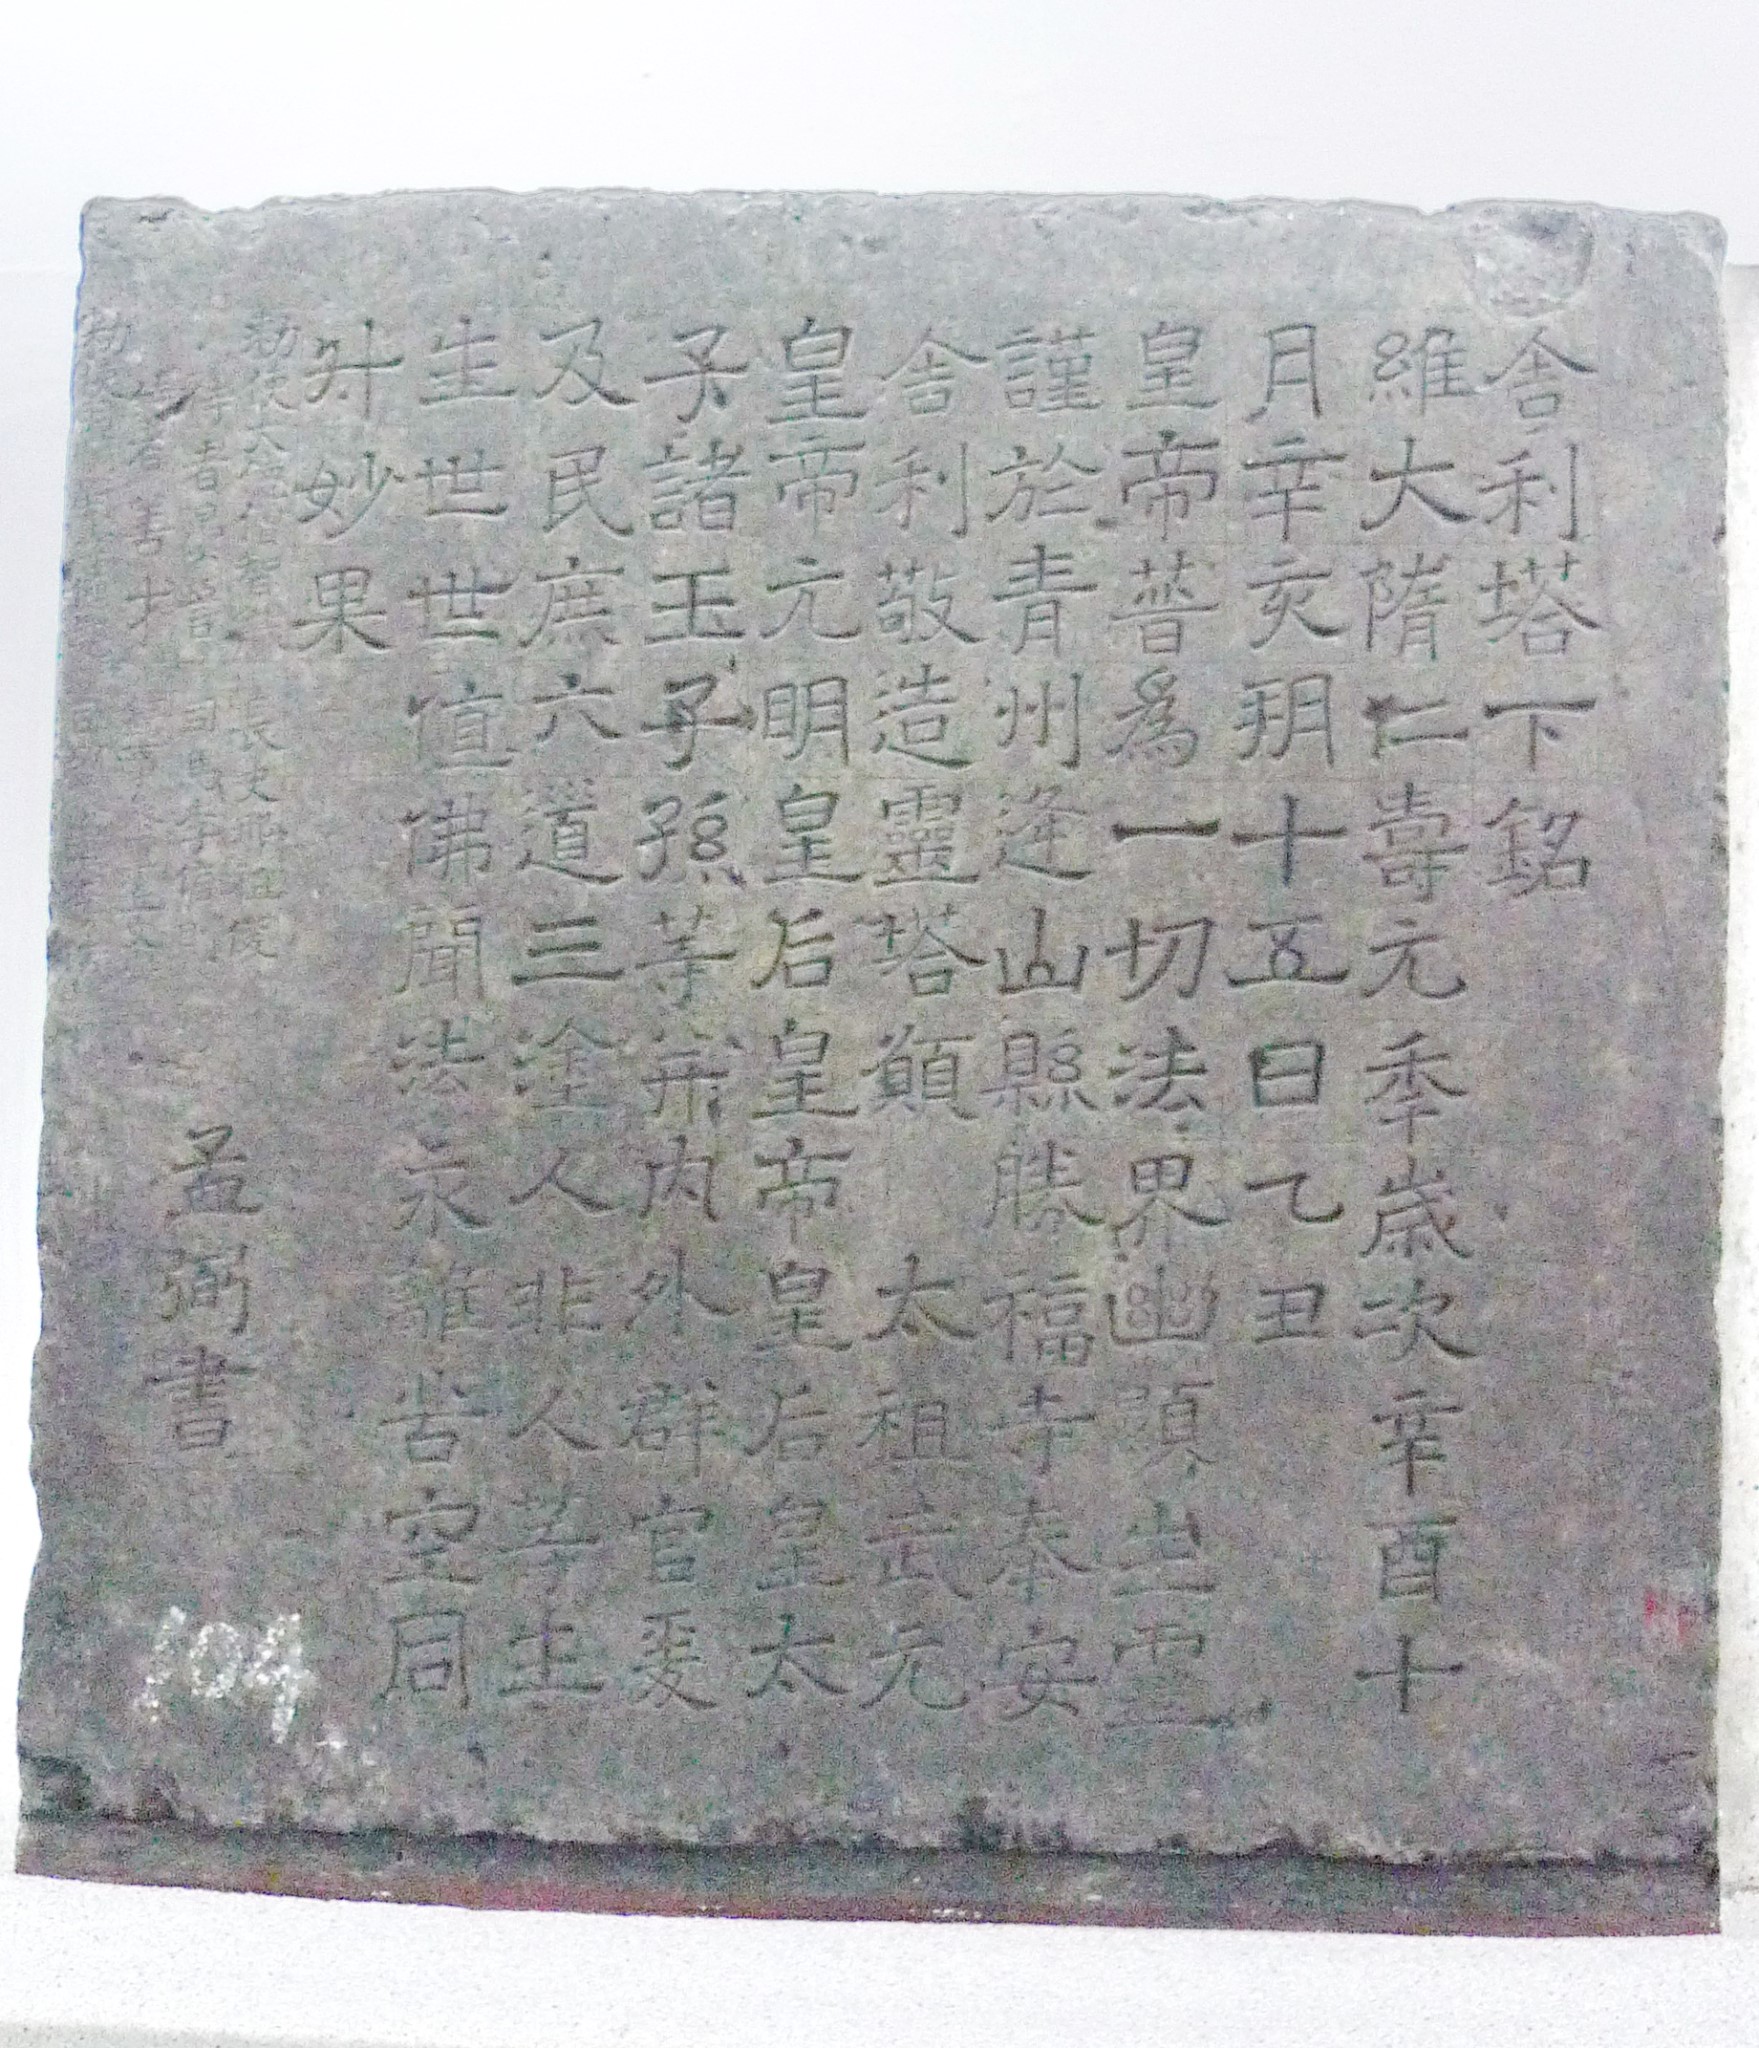 舍利塔下銘
維大隋仁壽元季歲次辛酉十
月辛亥朔十五日乙丑
皇帝普為一切法界幽顯生靈
謹於青州逢山縣勝福寺奉安
舍利敬造靈塔願 太祖武元
皇帝元明皇后皇帝皇后皇太
子諸王子孫等并內外群官爰
及民庶六道三塗人非人等生
生世世值佛聞法永離苦空同
升妙果
孟弼書
敕使大德僧智 長史邢祖俊
侍者曇 司馬李信則
侍者善才
敕使
104